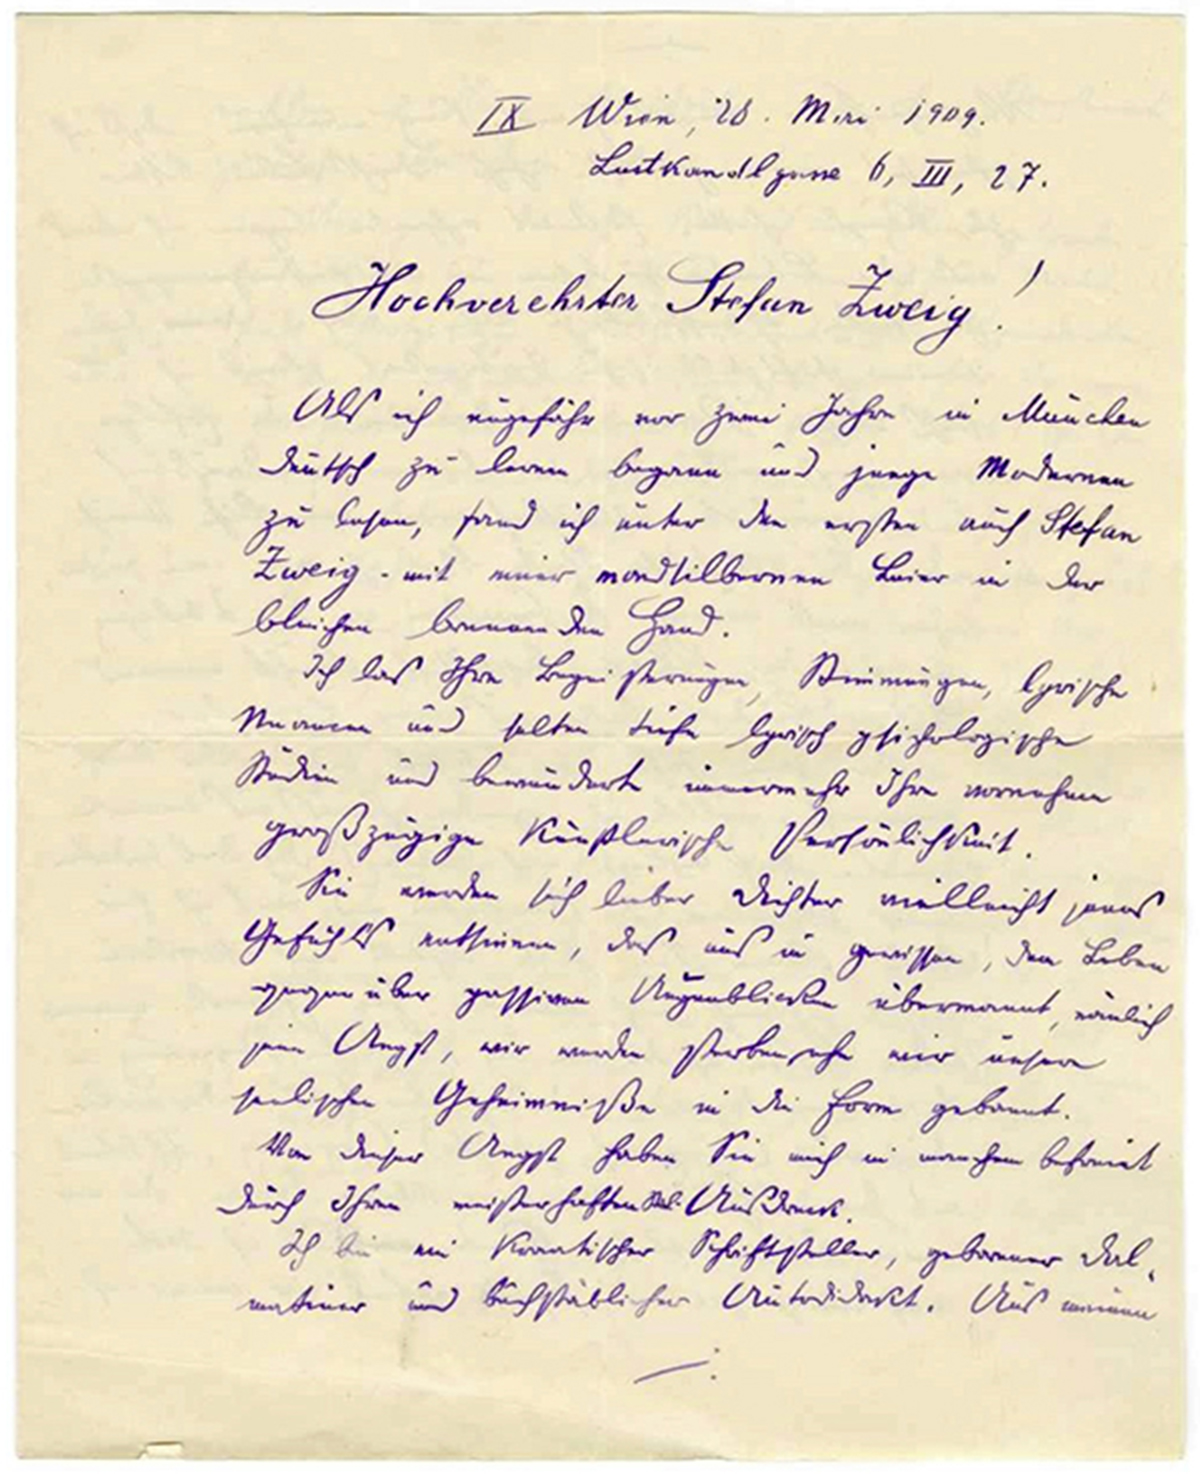 IX Wien, 28. Mai 1909.
Lustkandlgasse 6, III, 27.
Hochverehrter Stefan Zweig!
Als ich ungefähr vor zwei Jahre in München
deutsch zu lernen begann und junge Modernen
zu lesen, fand ich unter den ersten auch Stefan
Zweig - mit einer mondsilbernen Leier in der
bleichen brennenden Hand.
Ich las Ihre Begeisterungen, Stimmungen, lyrische
Nuancen und selten tiefe lyrisch psichologische
Studien und bewunderte immermehr Ihre vornehme
großzügige künstlerische Persönlichkeit.
Sie werden sich lieber Dichter vielleicht jenes
Gefühls entsinnen, das uns in gewissen, dem Leben
gegenüber passiven Augenblicken übermannt, nämlich
jene Angst, wir werden sterben ehe wir unsere
seelischen Geheimniße in die Form gebannt.
Von dieser Angst haben Sie mich in manchem befreit
durch Ihren meisterhaften Ausdruck.
Ich bin ein kroatischer Schriftsteller, geborener Dal-
matiner und buchstäblicher Autodidakt. Aus meinem